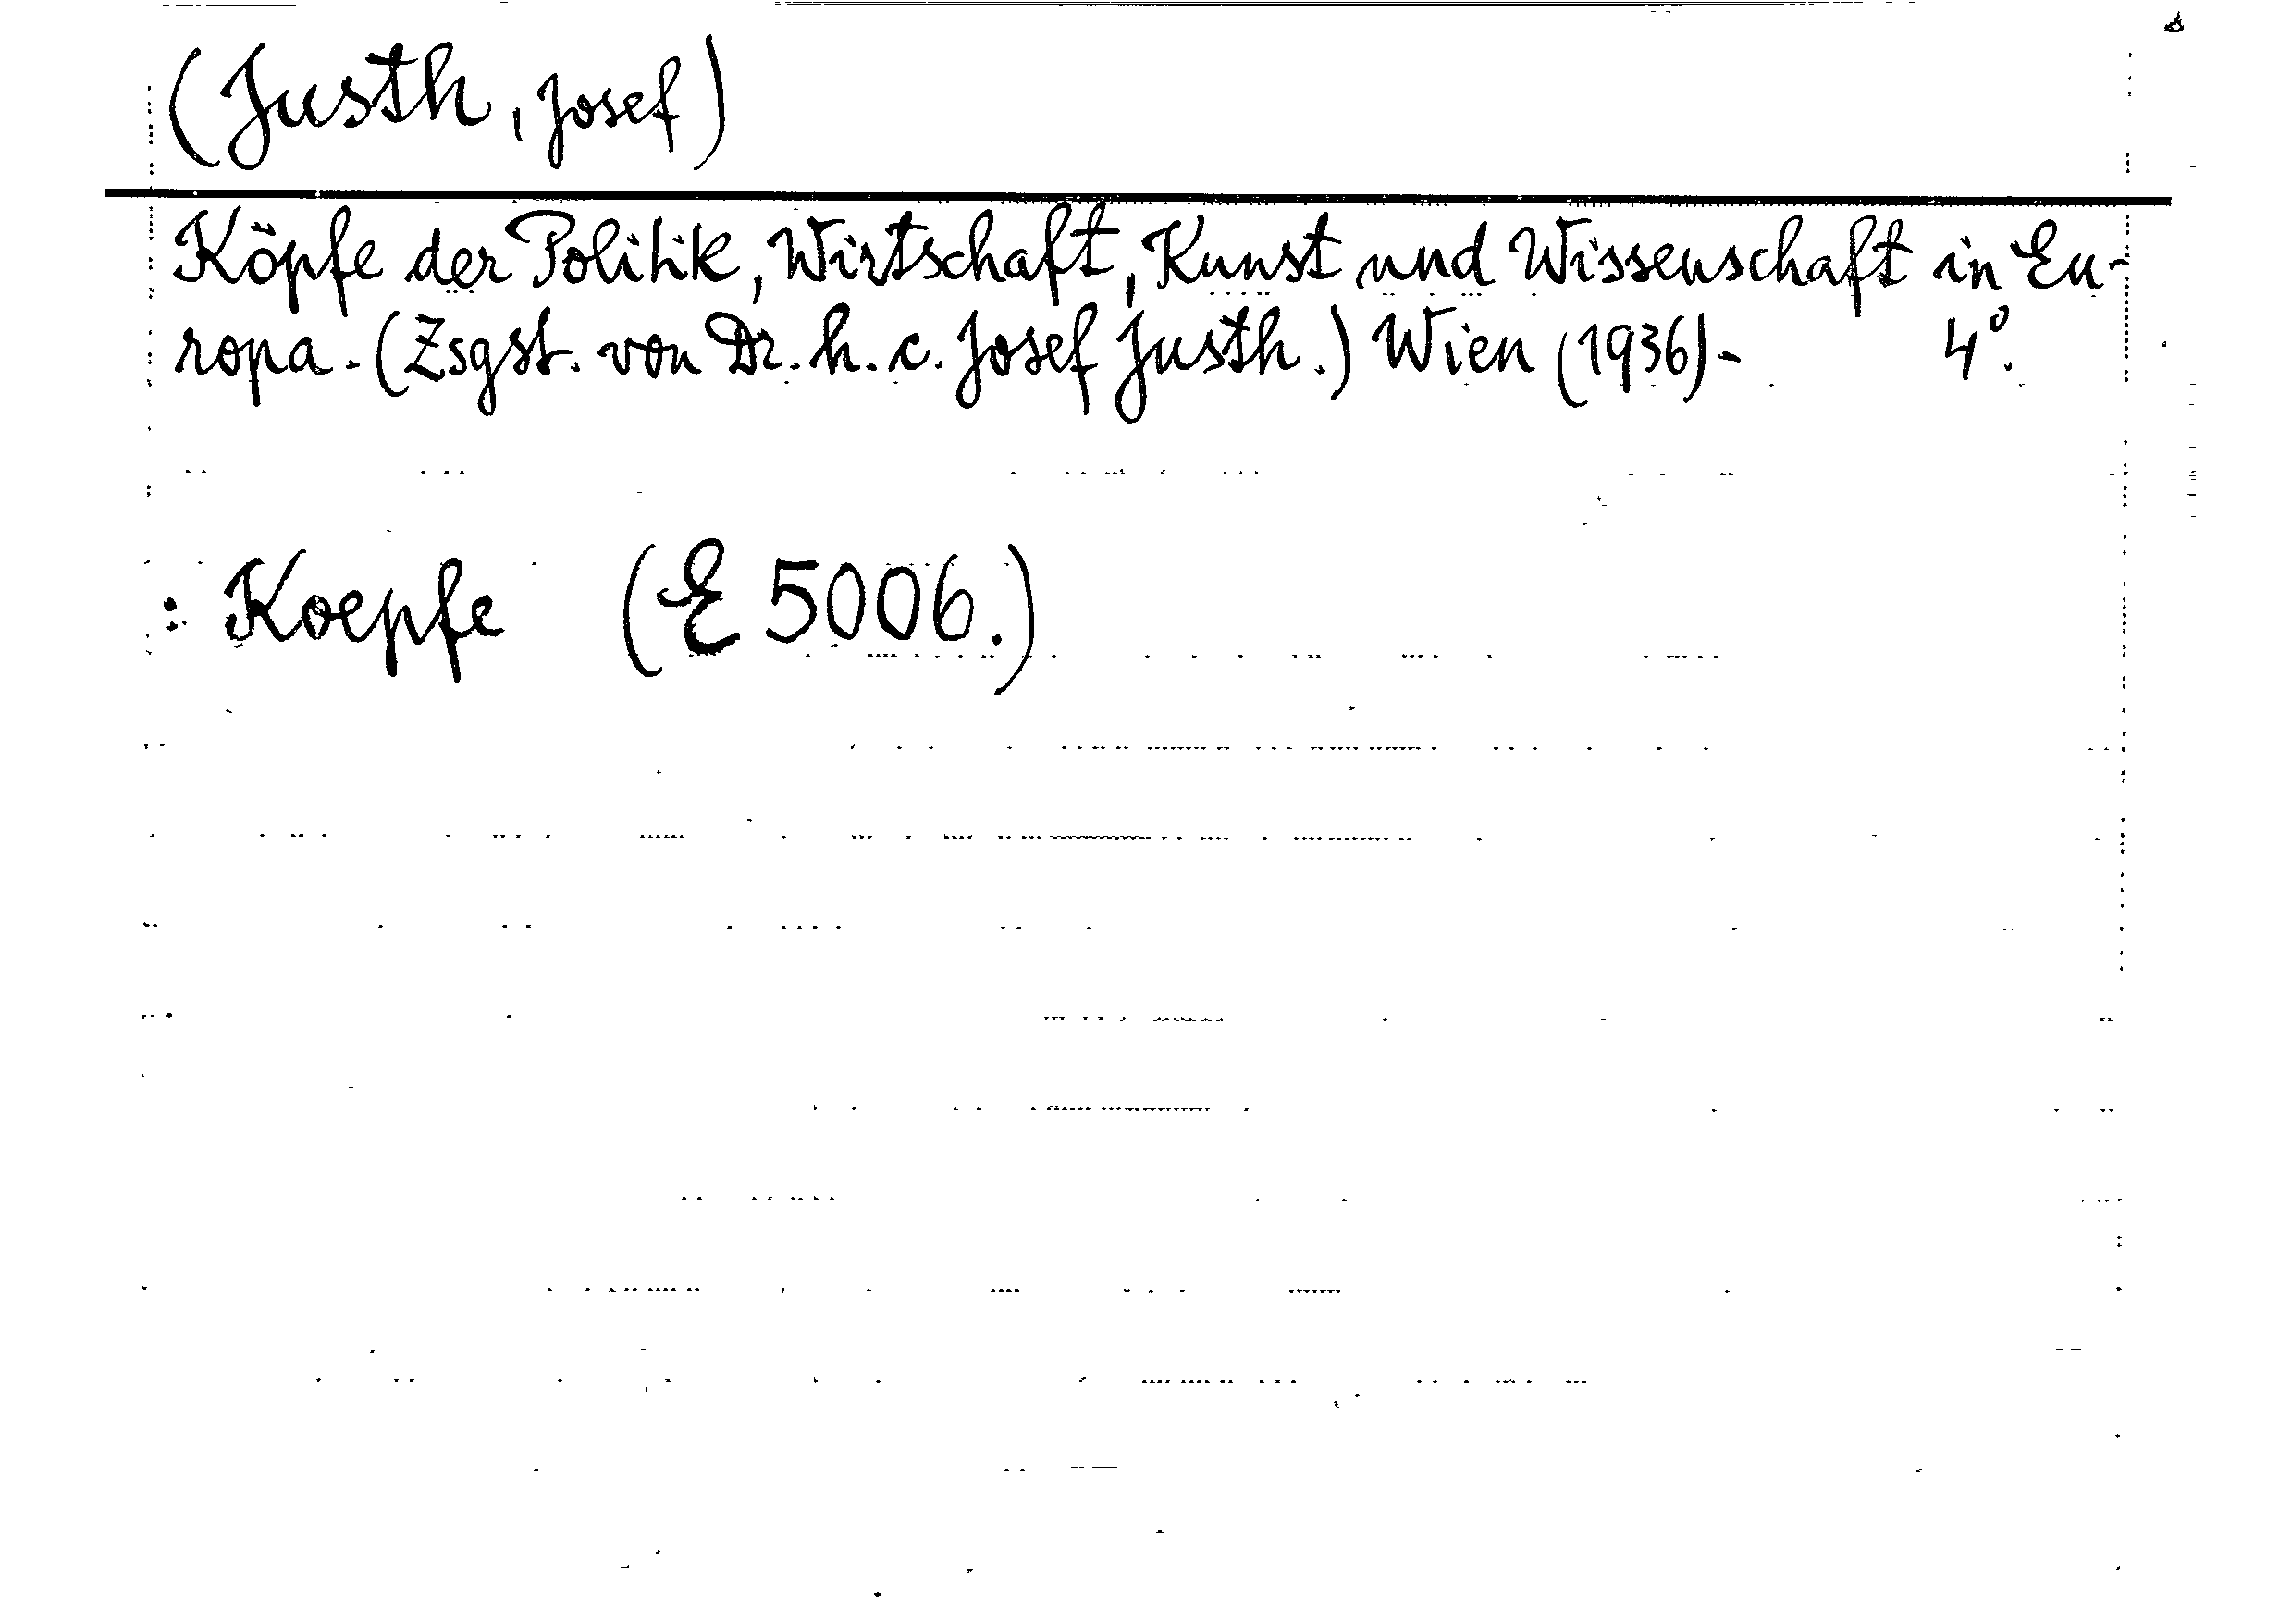 (Justh, Josef)
Köpfe der Politik, Wirtschaft, Kunst und Wissenschaft in Eu-
ropa. (Zsgst. von Dr. h. c. Josef Justh.) Wien (1936)- 4°.
: Koepfe (E 5006.)